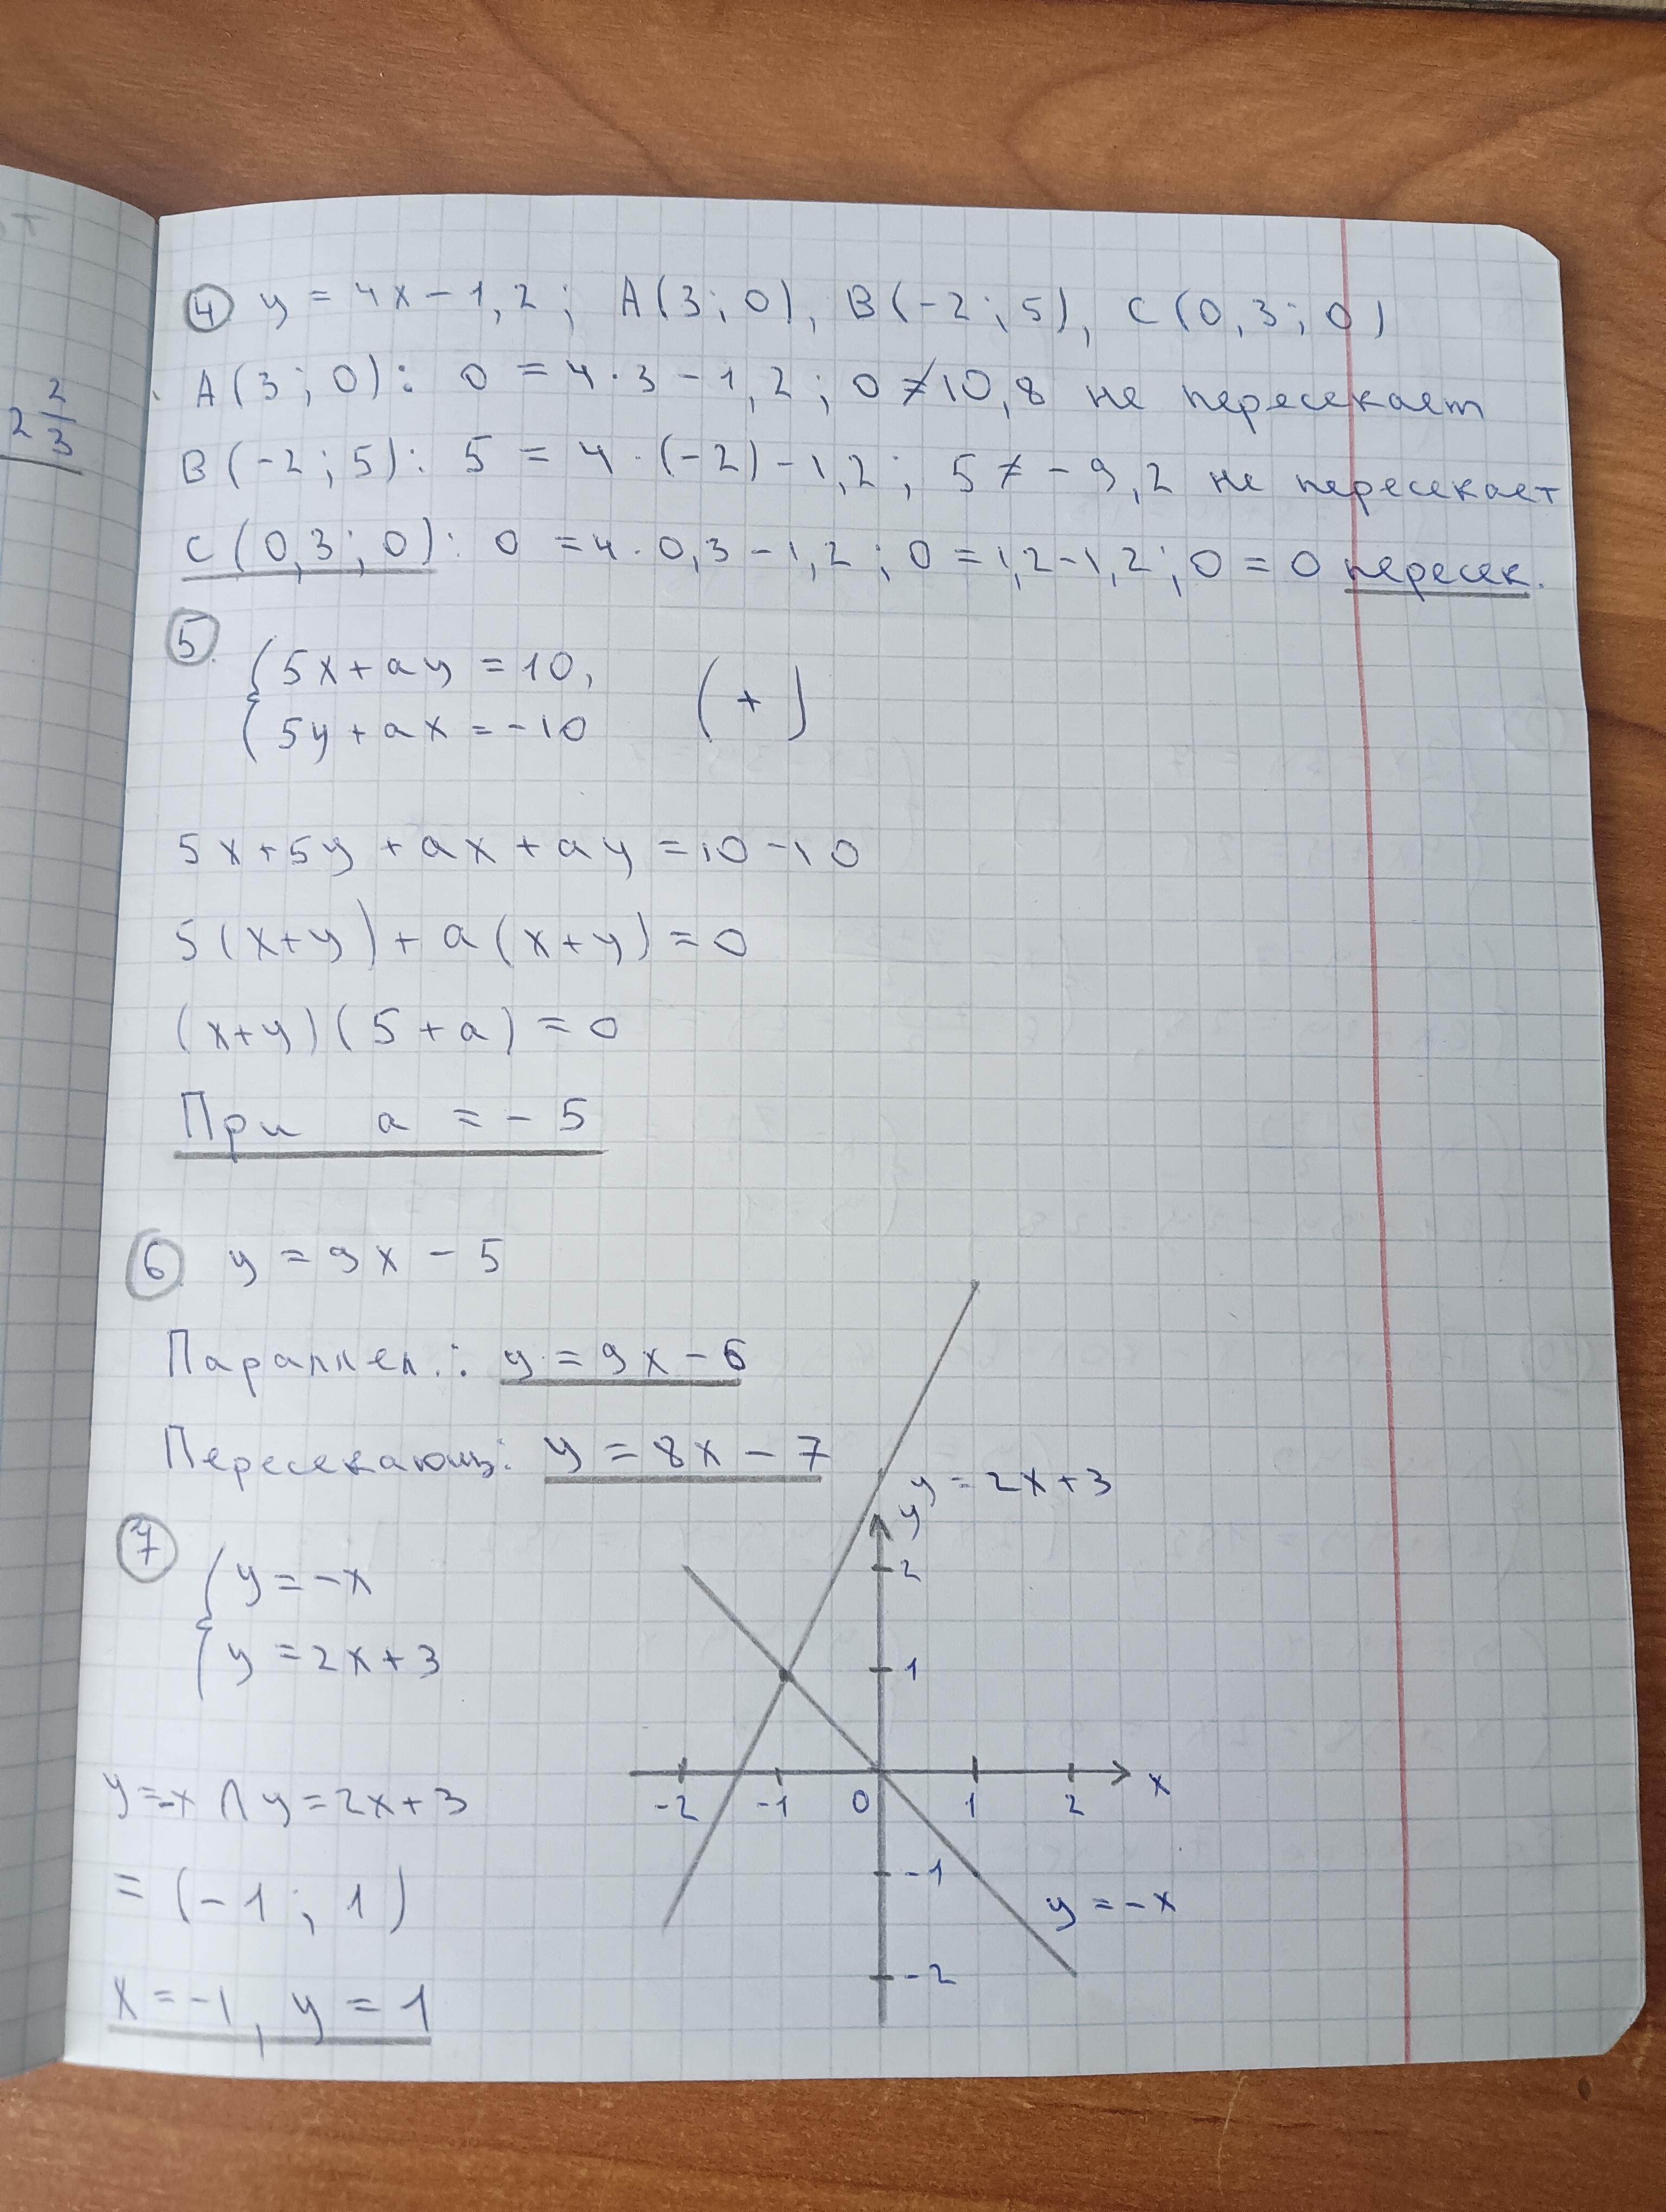 2 2/3
④ y = 4x - 1,2; A(3; 0), B(-2; 5), C(0,3; 0)
A(3; 0): 0 = 4·3 - 1,2; 0 ≠ 10,8 не пересекает
B(-2; 5): 5 = 4·(-2) - 1,2; 5 ≠ -9,2 не пересекает
C(0,3; 0): 0 = 4·0,3 - 1,2; 0 = 1,2 - 1,2; 0 = 0 пересек.
⑤
{ 5x + ay = 10,
{ 5y + ax = -10 (+)
5x + 5y + ax + ay = 10 - 10
5(x+y) + a(x+y) = 0
(x+y)(5+a) = 0
При a = -5
⑥ y = 9x - 5
Параллел.: y = 9x - 6
Пересекающ: y = 8x - 7
⑦
{ y = -x
{ y = 2x + 3
y = -x ∩ y = 2x + 3
= (-1; 1)
x = -1, y = 1
y = 2x + 3
y
2
1
-2 -1 0 1 2 x
-1
y = -x
-2